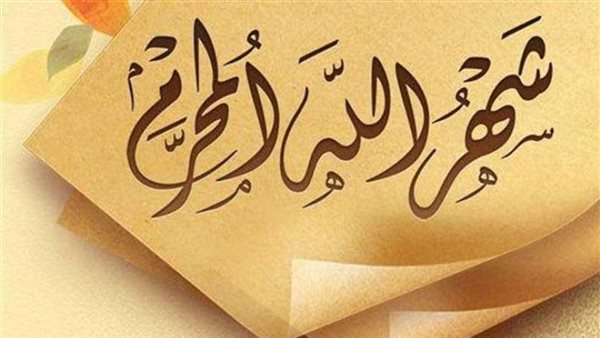 شَهْرُ اللَّهِ الْمُحَرَّمُ